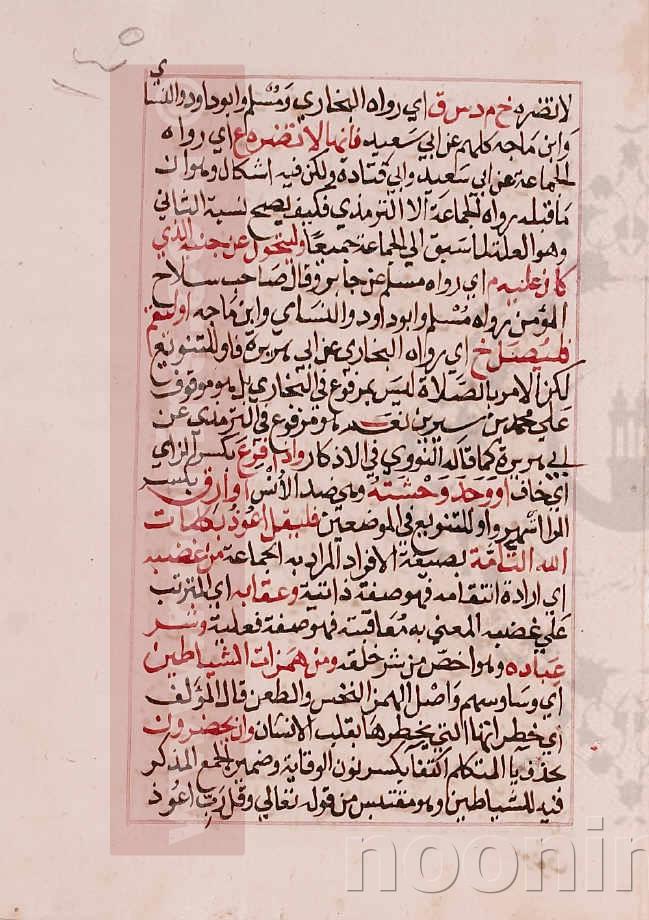 لا تضره خ م د س ق اي رواه البخاري ومسلم وابو داود والنساي
وابن ماجه كلهم عن ابي سعيد فانها لا تضره ع اي رواه
الجماعة عن ابي سعيد وابي قتادة ولكن فيه اشكال وهو ان
ما قبله رواه الجماعة الا الترمذي فكيف يصح نسبة الثاني
وهو العلة لما سبق الي الجماعة جميعا وليتحول عن جنبه الذي
كان عليه م اي رواه مسلم عن جابر وقال صاحب سلاح
المؤمن رواه مسلم وابو داود والنساي وابن ماجه او ليقم
فليصل خ اي رواه البخاري عن ابي هريرة فاو للتنويع
لكن الامر بالصلاة ليس بمرفوع في البخاري بل هو موقوف
علي محمد بن سيرين نعم هو مرفوع في الترمذي عن
ابي هريرة كما قاله النووي في الاذكار واذا فزع بكسر الزاي
اي خاف او وجد وحشته وهي ضد الأنس او ارق بكسر
الراء اي سهر واو للتنويع في الموضعين فليقل اعوذ بكلمات
الله التامة بصيغة الافراد المراد به الجماعة من غضبه
اي ارادة انتقامه فهو صفة ذاتية وعقابه اي المترتب
علي غضبه المعني به معاقبته فهو صفة فعلية وشر
عباده وهو اخص من شر خلقه ومن همزات الشياطين
اي وساوسهم واصل الهمز النخس والطعن قال المؤلف
اي خطراتها التي يخطرها بقلب الانسان وان يحضرون
بحذف يا المتكلم اكتفا بكسر نون الوقاية وضمير الجمع المذكر
فيه للشياطين وهو مقتبس من قوله تعالي وقل رب اعوذ
noonin